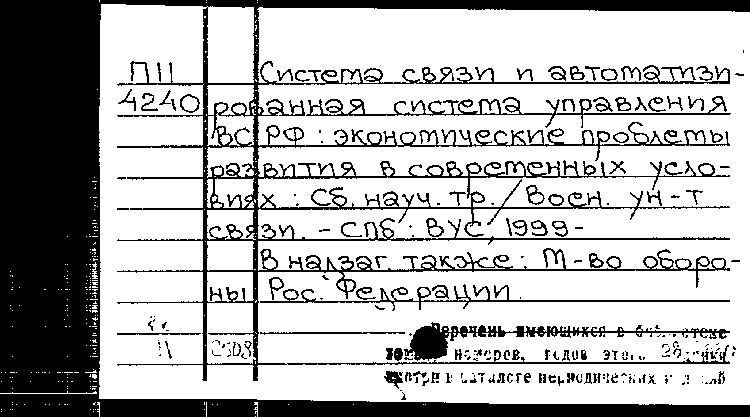 П11 Система связи и автоматизи-
4240 рованная система управления
ВС РФ : экономические проблемы
развития в современных усло-
виях : Сб. науч. тр. / Воен. ун-т
связи. - СПб : ВУС, 1999-
В надзаг. также: М-во оборо-
ны Рос. Федерации.
Перечень имеющихся в
номеров, годов
смотри в каталоге периодических